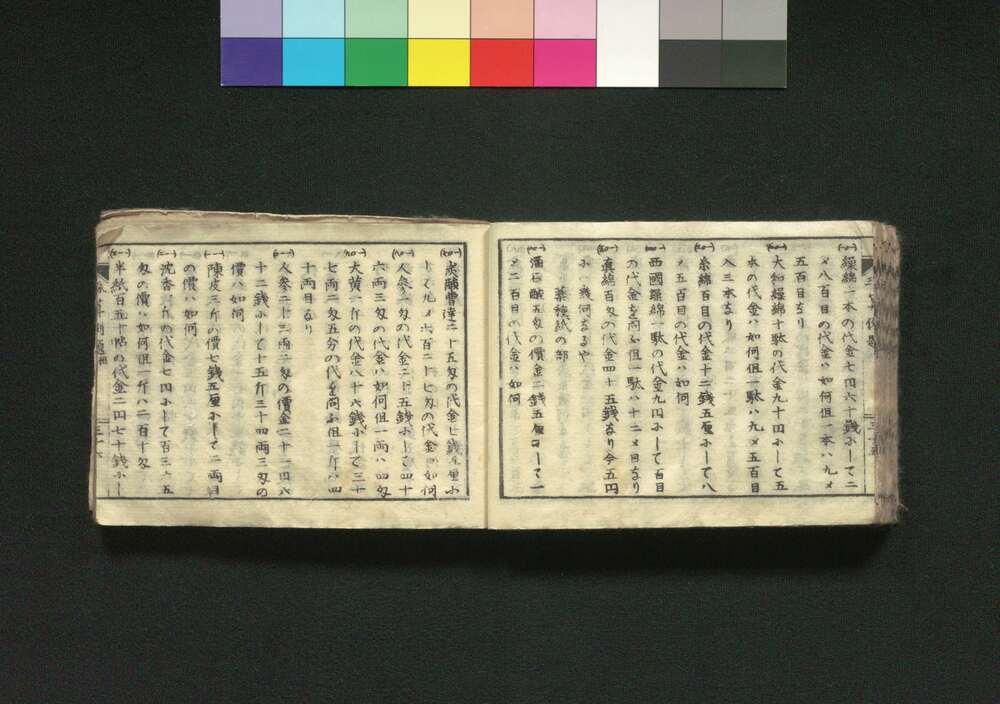 繰綿一本の代金七円六十銭ニして二
〆八百目の代金ハ如何但一本ハ九〆
五百目なり
大和繰綿十駄の代金九十円ニして五
本の代金ハ如何但一駄ハ九〆五百目
入三本なり
糸綿百目の代金十二銭五厘ニして八
〆五百目の代金ハ如何
西國繰綿一駄の代金九円ニして百目
の代金を問ふ但一駄ハ十二〆目なり
真綿百匁の代金四十五銭なり今五円
ニハ幾何なるや
薬種紙の部
酒石酸五匁の價金二銭五厘ニして一
〆二百目の代金ハ如何
炭酸曹達二十五匁の代金七銭五厘ニ
して九〆六百二十七匁の代金ハ如何
人参一匁の代金二十五銭ニして四十
六両三匁の代金ハ如何但一両ハ四匁
大黄一斤の代金八十六銭ニして三十
七両二匁五分の代を問ふ但一斤ハ四
十両目なり
人参二十三両二匁の價金二十二円八
十二銭ニして十五斤三十四両三匁の
價ハ如何
陳皮三斤の價七銭五厘ニして二両目
の價ハ如何
沈香一斤の代金七円ニして百三十五
匁の價ハ如何但一斤ハ二百十匁
半紙百五十帖の代金二円七十銭ニし